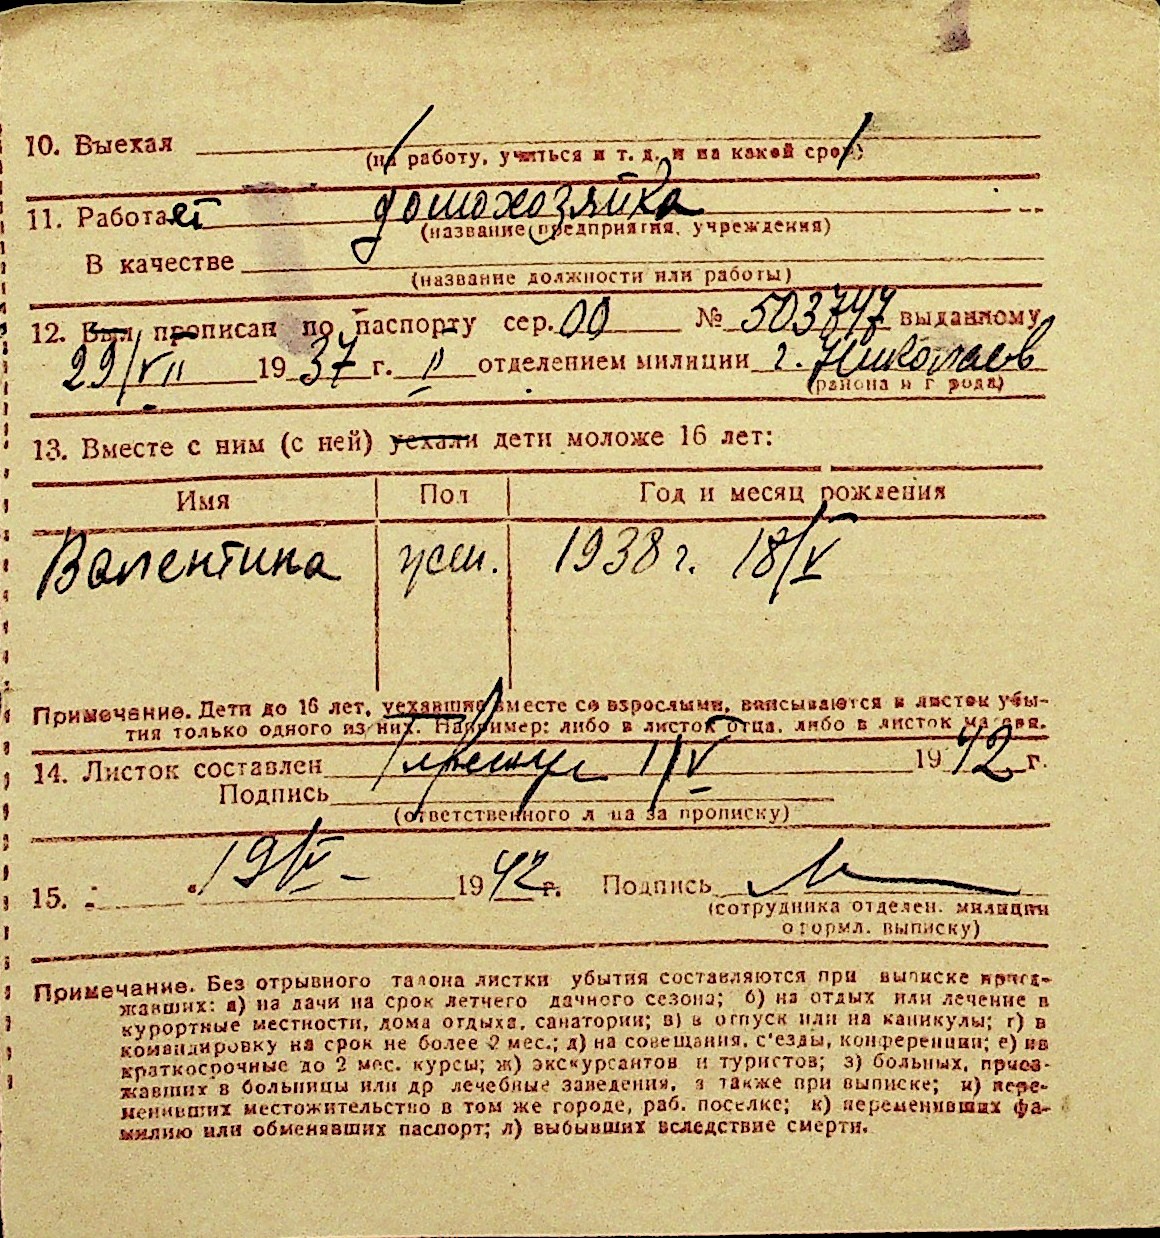 10. Выехал
(на работу, учиться и т. д. и на какой срок)
11. Работает домохозяйка
(название предприятия, учреждения)
В качестве
(название должности или работы)
12. Был прописан по паспорту сер. 00 № 503747 выданному
29/VII 1937 г. II отделением милиции г. Николаев
(района и города)
13. Вместе с ним (с ней) уехали дети моложе 16 лет:
Имя Пол Год и месяц рождения
Валентина жен. 1938 г. 18/V
Примечание. Дети до 16 лет, уехавшие вместе со взрослыми, вписываются в листок убы-
тия только одного из них. Например: либо в листок отца, либо в листок матери.
14. Листок составлен 1/V 1942 г.
Подпись
(ответственного лица за прописку)
15. 19/V 1942 г. Подпись
(сотрудника отделен. милиции
оформл. выписку)
Примечание. Без отрывного талона листки убытия составляются при выписке приез-
жавших: а) на дачи на срок летнего дачного сезона; б) на отдых или лечение в
курортные местности, дома отдыха, санатории; в) в отпуск или на каникулы; г) в
командировку на срок не более 2 мес.; д) на совещания, с'езды, конференции; е) на
краткосрочные до 2 мес. курсы; ж) экскурсантов и туристов; з) больных, приез-
жавших в больницы или др лечебные заведения, а также при выписке; и) пере-
менивших местожительство в том же городе, раб. поселке; к) переменивших фа-
милию или обменявших паспорт; л) выбывших вследствие смерти.